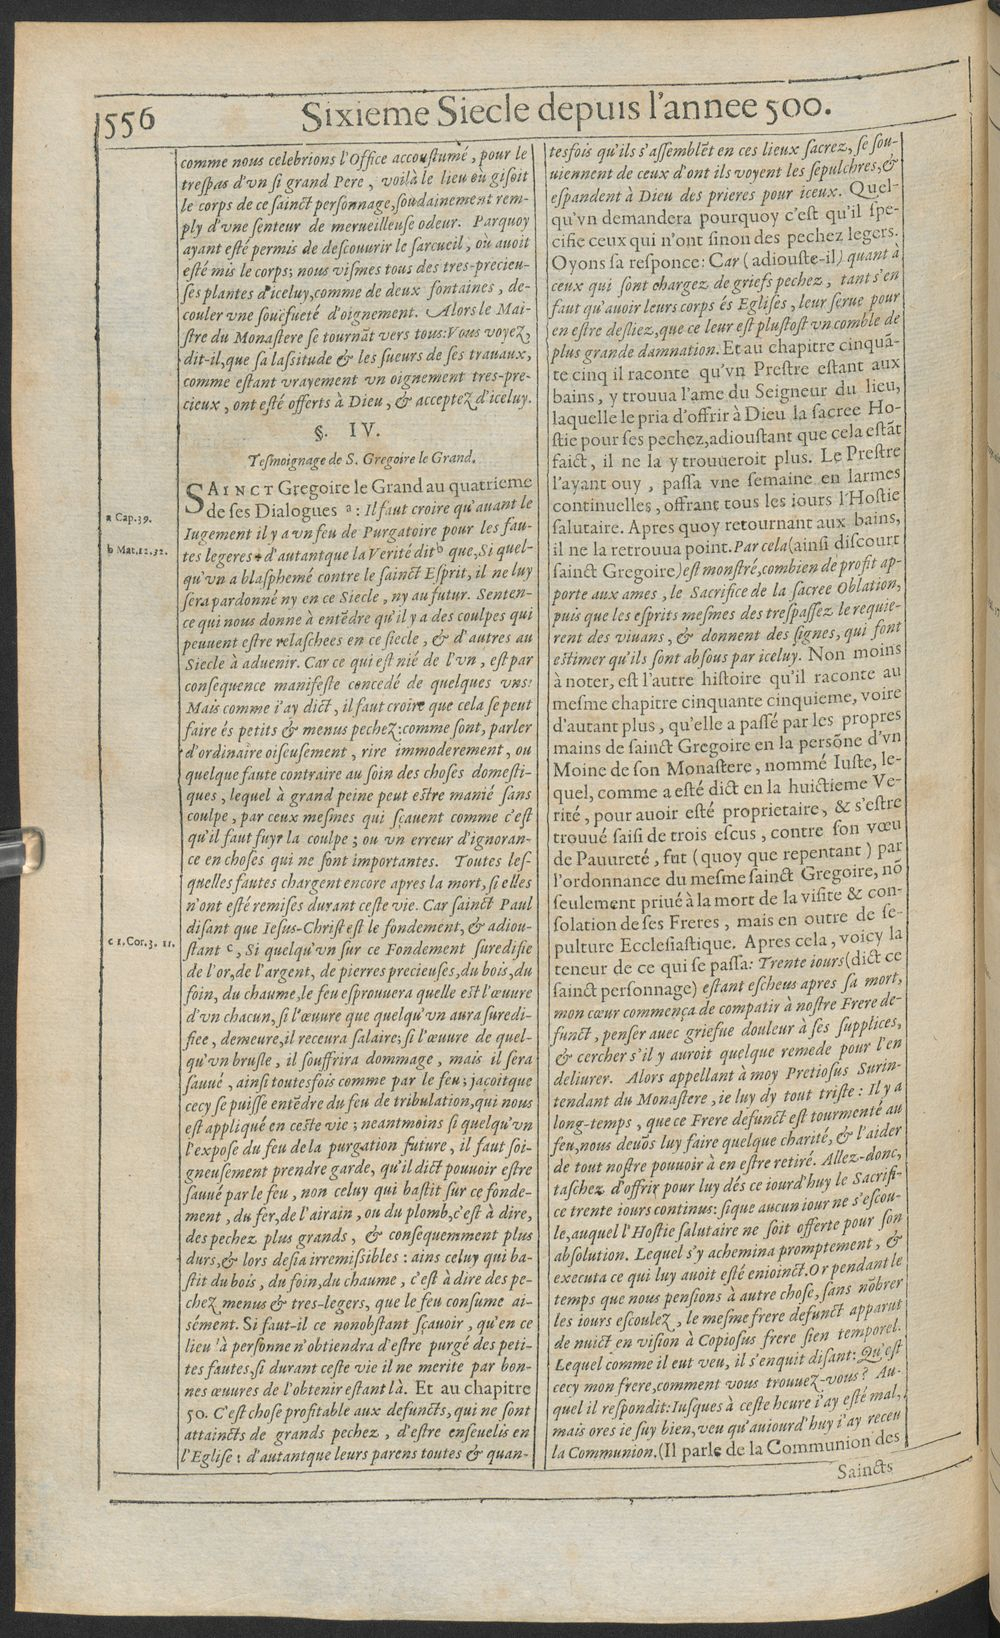 556
Sixieme Siecle depuis l'annee 500.
comme nous celebrions l'Office accoustumé, pour le
trespas d'vn si grand Pere, voilà le lieu où gisoit
le corps de ce sainct personnage, soudainement rem-
ply d'vne senteur de merueilleuse odeur. Parquoy
ayant esté permis de descouurir le sarcueil, où auoit
esté mis le corps; nous vismes tous des tres-precieu-
ses plantes d'iceluy, comme de deux fontaines, de-
couler vne soüefueté d'oignement. Alors le Mai-
stre du Monastere se tournãt vers tous: Vous voyez,
dit-il, que sa lassitude & les sueurs de ses trauaux,
comme estant vrayement vn oignement tres-pre-
cieux, ont esté offerts à Dieu, & acceptez d'iceluy.
§. IV.
Tesmoignage de S. Gregoire le Grand.
SAINCT Gregoire le Grand au quatrieme
de ses Dialogues a: Il faut croire qu'auant le
a Cap.39.
Iugement il y a vn feu de Purgatoire pour les fau-
tes legeres: d'autantque la Verité dit b que, Si quel-
b Mat.12.32.
qu'vn a blasphemé contre le sainct Esprit, il ne luy
sera pardonné ny en ce Siecle, ny au futur. Senten-
ce qui nous donne à entẽdre qu'il y a des coulpes qui
peuuent estre relaschees en ce siecle, & d'autres au
Siecle à aduenir. Car ce qui est nié de l'vn, est par
consequence manifeste concedé de quelques vns:
Mais comme i'ay dict, il faut croire que cela se peut
faire és petits & menus pechez: comme sont, parler
d'ordinaire oiseusement, rire immoderement, ou
quelque faute contraire au soin des choses domesti-
ques, lequel à grand peine peut estre manié sans
coulpe, par ceux mesmes qui sçauent comme c'est
qu'il faut fuyr la coulpe; ou vn erreur d'ignoran-
ce en choses qui ne sont importantes. Toutes les-
quelles fautes chargent encore apres la mort, si elles
n'ont esté remises durant ceste vie. Car sainct Paul
disant que Iesus-Christ est le fondement, & adiou-
stant c, Si quelqu'vn sur ce Fondement suredifie
c 1.Cor.3. 11.
de l'or, de l'argent, de pierres precieuses, du bois, du
foin, du chaume, le feu esprouuera quelle est l'œuure
d'vn chacun, si l'œuure que quelqu'vn aura suredi-
fiee, demeure, il receura salaire; si l'œuure de quel-
qu'vn brusle, il souffrira dommage, mais il sera
sauué, ainsi toutesfois comme par le feu; jacoitque
cecy se puisse entẽdre du feu de tribulation, qui nous
est appliqué en ceste vie; neantmoins si quelqu'vn
l'expose du feu de la purgation future, il faut soi-
gneusement prendre garde, qu'il dict pouuoir estre
sauué par le feu, non celuy qui bastit sur ce fonde-
ment, du fer, de l'airain, ou du plomb, c'est à dire,
des pechez plus grands, & consequemment plus
durs, & lors desia irremissibles: ains celuy qui ba-
stit du bois, du foin, du chaume, c'est à dire des pe-
chez menus & tres-legers, que le feu consume ai-
sément. Si faut-il ce nonobstant sçauoir, qu'en ce
lieu là personne n'obtiendra d'estre purgé des peti-
tes fautes, si durant ceste vie il ne merite par bon-
nes œuures de l'obtenir estant là. Et au chapitre
50. C'est chose profitable aux defuncts, qui ne sont
attaincts de grands pechez, d'estre enseuelis en
l'Eglise: d'autantque leurs parens toutes & quan-
tesfois qu'ils s'assemblẽt en ces lieux sacrez, se sou-
uiennent de ceux d'ont ils voyent les sepulchres, &
espandent à Dieu des prieres pour iceux. Quel-
qu'vn demandera pourquoy c'est qu'il spe-
cifie ceux qui n'ont sinon des pechez legers.
Oyons sa responce: Car (adiouste-il) quant à
ceux qui sont chargez de griefs pechez, tant s'en
faut qu'auoir leurs corps és Eglises, leur serue pour
en estre desliez, que ce leur est plustost vn comble de
plus grande damnation. Et au chapitre cinquã-
te cinq il raconte qu'vn Prestre estant aux
bains, y trouua l'ame du Seigneur du lieu,
laquelle le pria d'offrir à Dieu la sacree Ho-
stie pour ses pechez, adioustant que cela estãt
faict, il ne la y trouueroit plus. Le Prestre
l'ayant ouy, passa vne semaine en larmes
continuelles, offrant tous les iours l'Hostie
salutaire. Apres quoy retournant aux bains,
il ne la retrouua point. Par cela (ainsi discourt
sainct Gregoire) est monstré, combien de profit ap-
porte aux ames, le Sacrifice de la sacree Oblation,
puis que les esprits mesmes des trespassez le requie-
rent des viuans, & donnent des signes, qui font
estimer qu'ils sont absous par iceluy. Non moins
à noter, est l'autre histoire qu'il raconte au
mesme chapitre cinquante cinquieme, voire
d'autant plus, qu'elle a passé par les propres
mains de sainct Gregoire en la persõne d'vn
Moine de son Monastere, nommé Iuste, le-
quel, comme a esté dict en la huictieme Ve-
rité, pour auoir esté proprietaire, & s'estre
trouué saisi de trois escus, contre son vœu
de Pauureté, fut (quoy que repentant) par
l'ordonnance du mesme sainct Gregoire, nõ
seulement priué à la mort de la visite & con-
solation de ses Freres, mais en outre de se-
pulture Ecclesiastique. Apres cela, voicy la
teneur de ce qui se passa: Trente iours (dict ce
sainct personnage) estant escheus apres sa mort,
mon cœur commença de compatir à nostre Frere de-
funct, penser auec griefue douleur à ses supplices,
& cercher s'il y auroit quelque remede pour l'en
deliurer. Alors appellant à moy Pretiosus Surin-
tendant du Monastere, ie luy dy tout triste: Il y a
long-temps, que ce Frere defunct est tourmenté au
feu, nous deuõs luy faire quelque charité, & l'aider
de tout nostre pouuoir à en estre retiré. Allez-donc,
taschez d'offrir pour luy dés ce iourd'huy le Sacrifi-
ce trente iours continus: sique aucun iour ne s'escou-
le, auquel l'Hostie salutaire ne soit offerte pour son
absolution. Lequel s'y achemina promptement, &
executa ce qui luy auoit esté enioinct. Or pendant le
temps que nous pensions à autre chose, sans nõbrer
les iours escoulez, le mesme frere defunct apparut
de nuict en vision à Copiosus frere sien temporel.
Lequel comme il eut veu, il s'enquit disant: Qu'est
cecy mon frere, comment vous trouuez-vous? Au-
quel il respondit: Iusques à ceste heure i'ay esté mal,
mais ores ie suy bien, veu qu'auiourd'huy i'ay receu
la Communion. (Il parle de la Communion des
Saincts